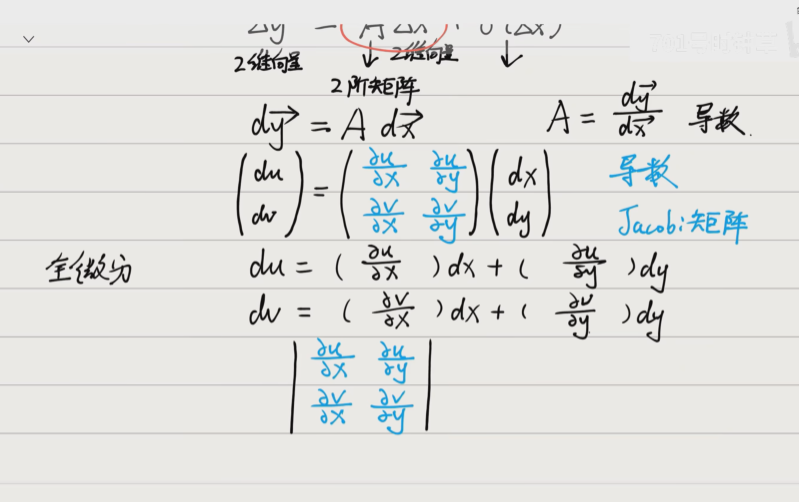 Δy = A Δx + o(Δx)
2维向量 2维向量
2阶矩阵
dy⃗ = A dx⃗ A = dy⃗/dx⃗ 导数.
(du dv) = (∂u/∂x ∂u/∂y ∂v/∂x ∂v/∂y) (dx dy) 导数
Jacobi矩阵
全微分 du = ( ∂u/∂x ) dx + ( ∂u/∂y ) dy
dv = ( ∂v/∂x ) dx + ( ∂v/∂y ) dy
| ∂u/∂x ∂u/∂y |
| ∂v/∂x ∂v/∂y |